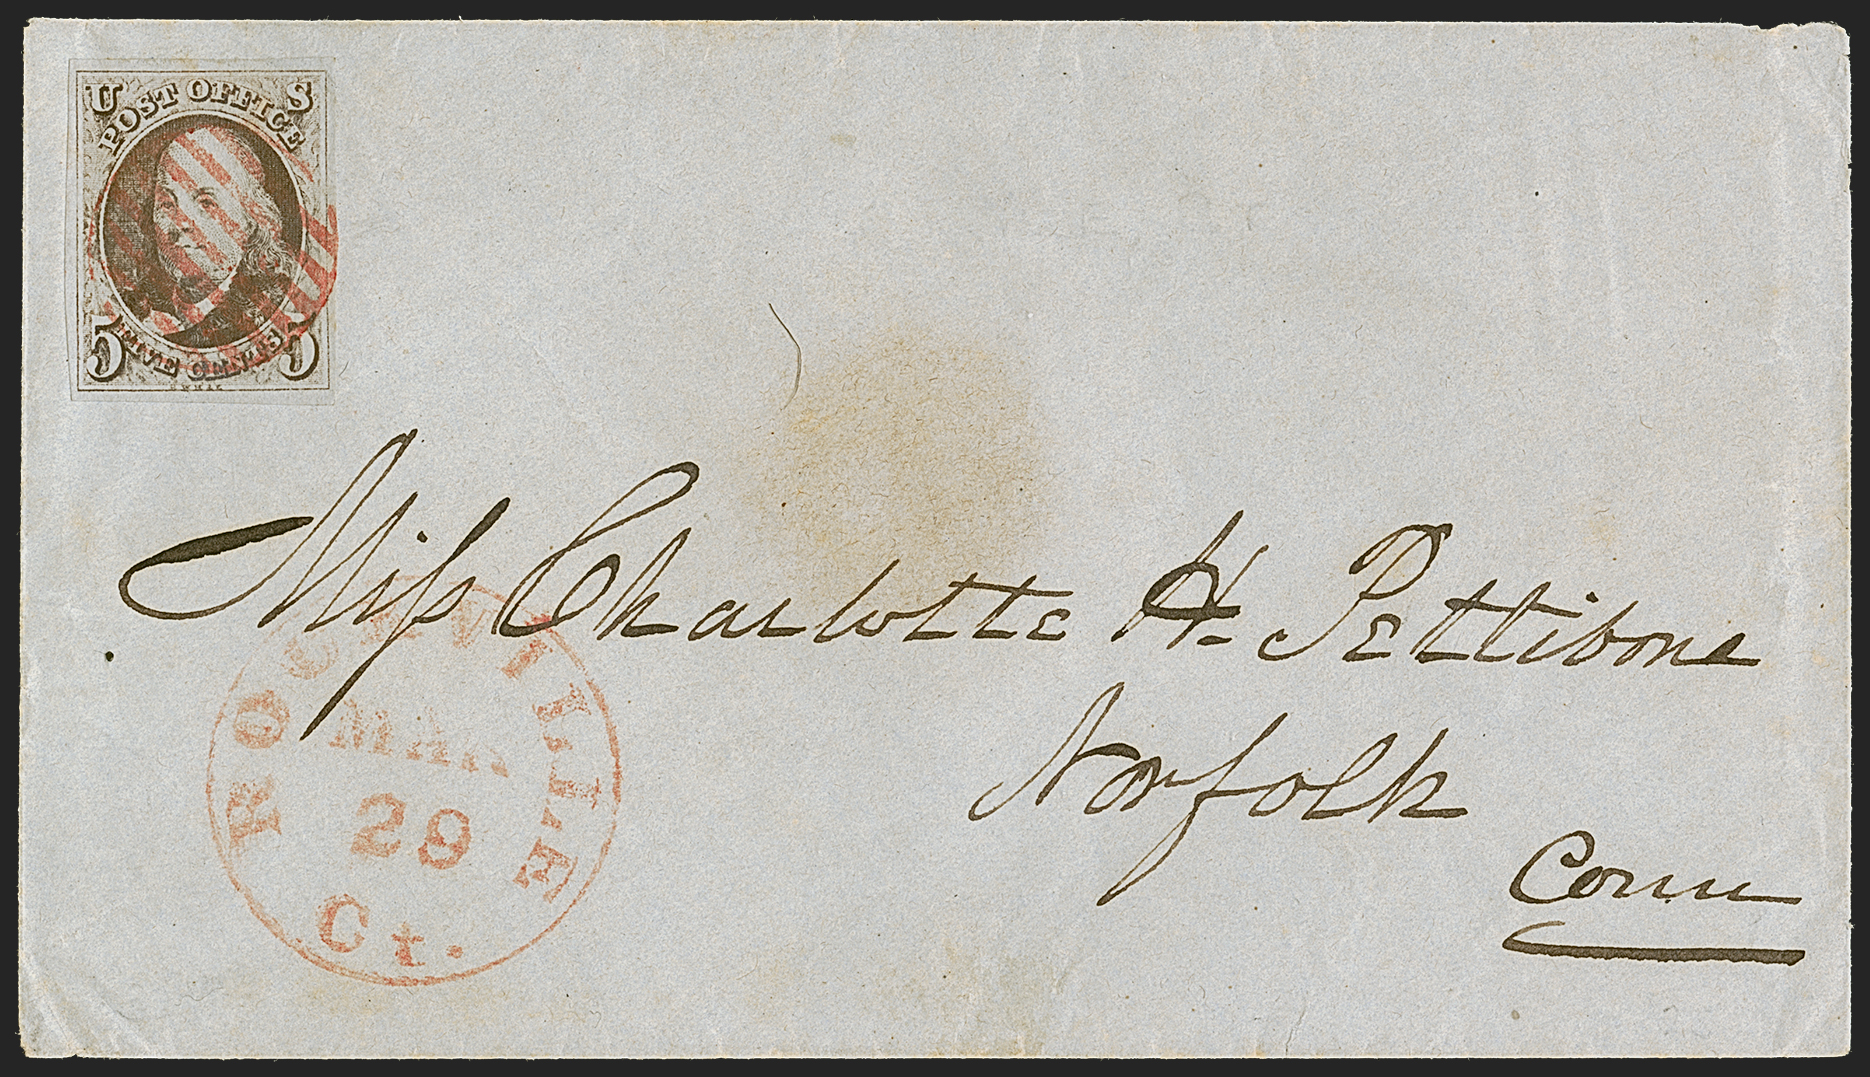 U S
POST OFFICE
5 FIVE CENTS 5
Miss Charlotte H. Pettibone
Norfolk
Conn
ROCKVILLE
MAR
29
Ct.